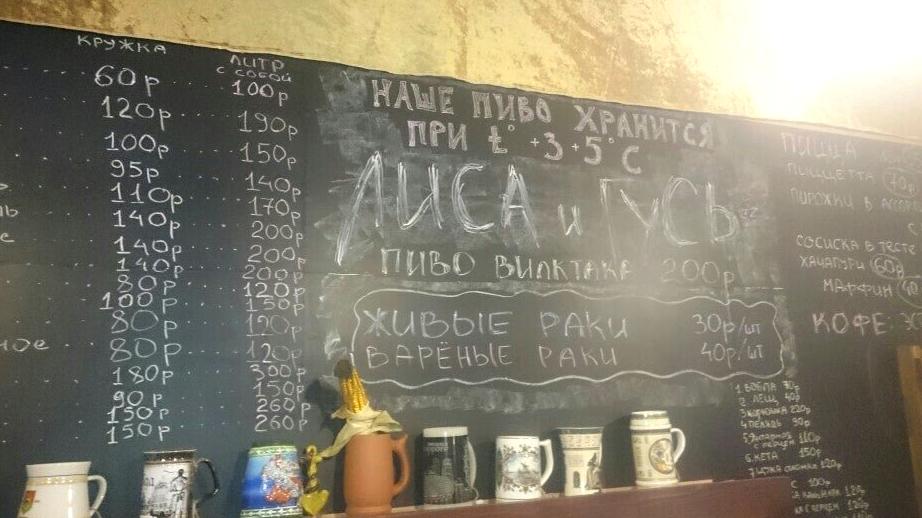 КРУЖКА
60р
120р
100р
95р
110р
140р
140р
140р
80р
100р
80р
80р
180р
90р
150р
150р
ЛИТР
С СОБОЙ
100р
190р
150р
140р
170р
200р
200р
200р
120р
150р
120р
120р
300р
150р
260р
260р
НАШЕ ПИВО ХРАНИТСЯ
ПРИ t° +3+5°C
ЛИСА и ГУСЬ
ПИВО ВИЛКТАКА 200р
ЖИВЫЕ РАКИ 30р/шт
ВАРЁНЫЕ РАКИ 40р/шт
ПИЦЦА
ПИЦЦЕТТА 70р
ПИРОЖКИ В АССОР
СОСИСКА В ТЕСТЕ
ХАЧАПУРИ 60р
МАФФИН 40
КОФЕ 30
1 ВОБЛА 30р
2. ЛЕЩ 40р
220р
4 ПЕЛЯДЬ 90р
5. ЯНТАРНАЯ
С ПЕРЦЕМ 110р
6. КЕТА 150р
120р
100р
120р
С ПЕРЦЕМ 120р